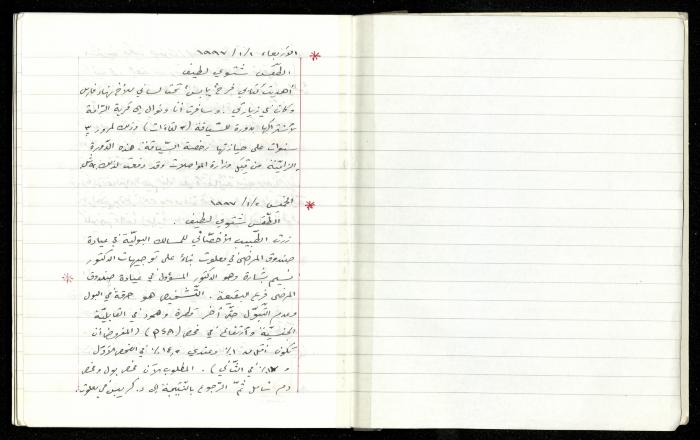 الأربعاء ١/١/١٩٩٧ *
الطقس شتوي لطيف
أهديت كتابي فرح يابس تحت لساني للأخ نهاد فارس
وكان في زيارتي. وسافرت أنا ونوال إلى قرية الرامة
لاشتراكها بدورة للسّياقة (٣ لقاءات) وذلك لمرور ٣
سنوات على حيازتها رخصة السّياقة. هذه الدّورة
إلزاميّة من قِبَل وزارة المواصلات وقد دفعت لذلك
الخميس ٢/١/١٩٩٧ *
الطّقس شتوي لطيف.
زرت الطّبيب الأخصّائي للمسالك البوليّة في عيادة
صندوق المرضى في معلوت بناءً على توجيهات الدكتور
نسيم بشارة وهو الدكتور المسؤول في عيادة صندوق *
المرضى فرع البقيعة. التّشخيص هو حرقة في البول
وعدم التّبوّل حتّى آخر قطرة وهمود في القابليّة
الجنسيّة وارتفاع في فحص (المفروض أن
تكون أقل من ١٪ وعندي ١٤٫٥٪ في الفحص الأوّل
و في الثّاني). المطلوب الآن فحص بول وفحص
دم شامل ثمّ الرّجوع بالنّتيجة إلى د. في معلوت.